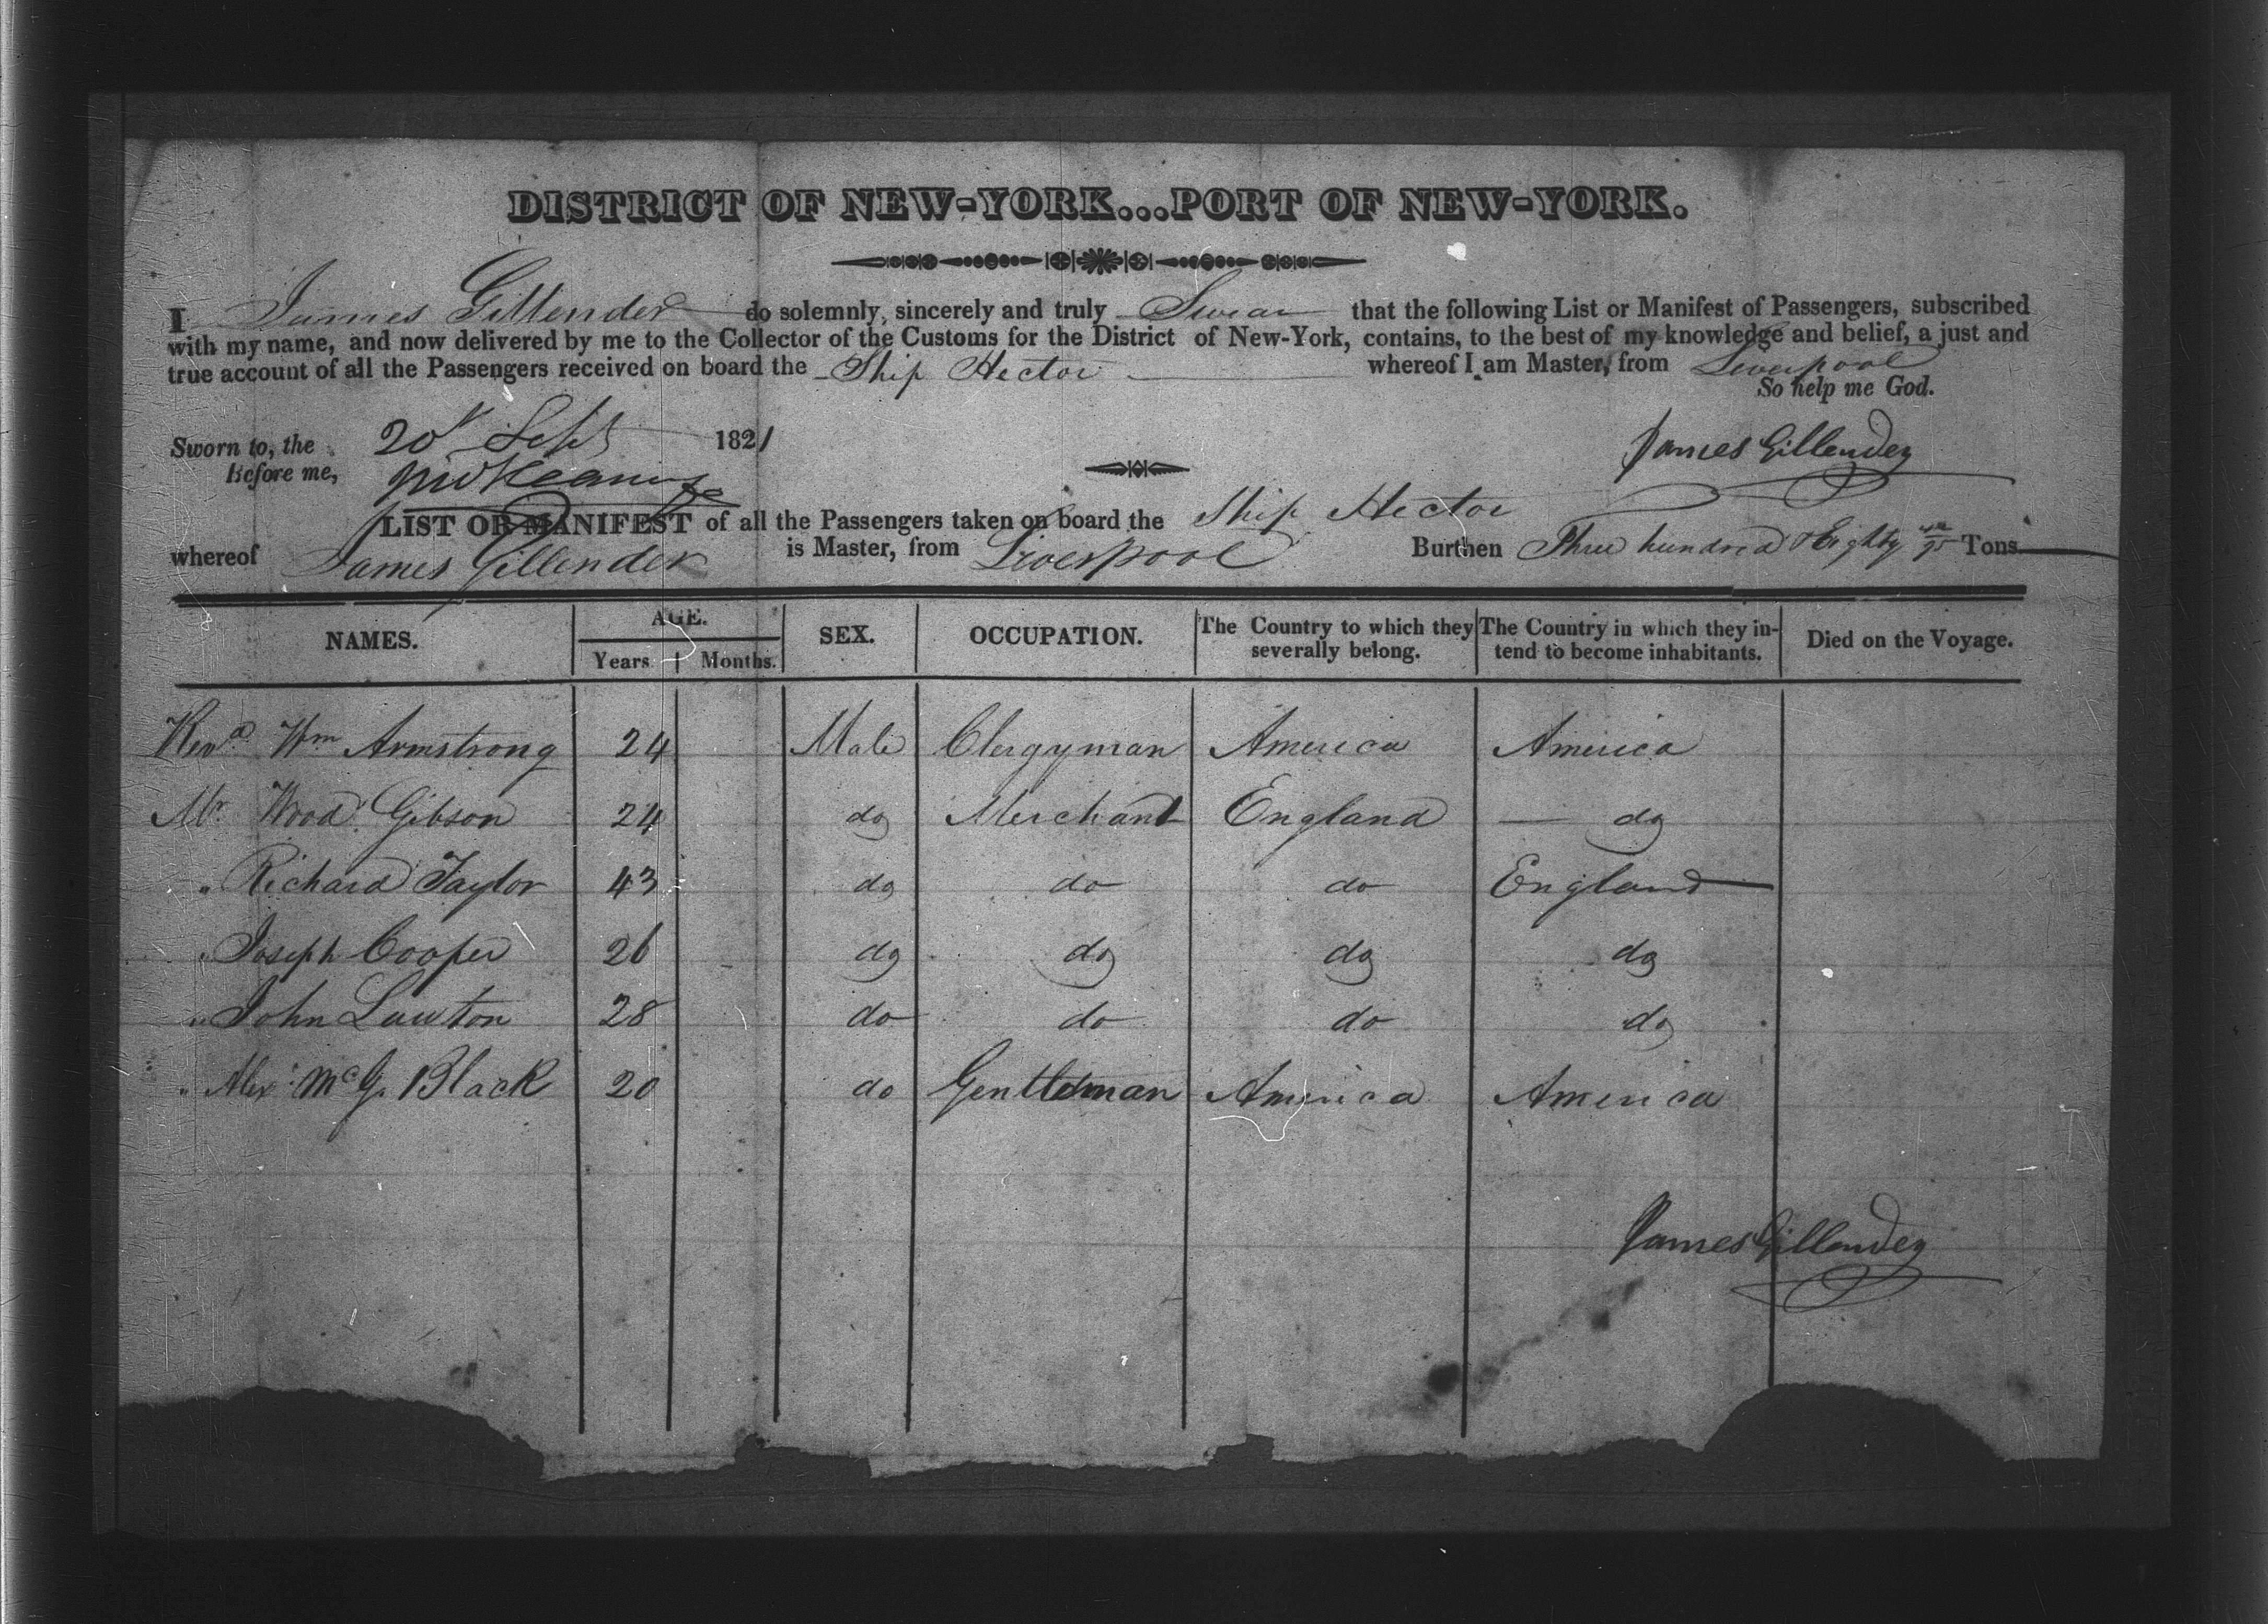 DISTRICT OF NEW-YORK...PORT OF NEW-YORK.
I James Gillender do solemnly, sincerely and truly Swear that the following List or Manifest of Passengers, subscribed
with my name, and now delivered by me to the Collector of the Customs for the District of New-York, contains, to the best of my knowledge and belief, a just and
true account of all the Passengers received on board the Ship Hector whereof I am Master, from Liverpool
So help me God.
Sworn to, the 20 Sept 1821
Before me,
James Gillender
LIST OR MANIFEST of all the Passengers taken on board the Ship Hector
whereof James Gillender is Master, from Liverpool Burthen Three hundred & Eighty Tons
NAMES. AGE. Years Months. SEX. OCCUPATION. The Country to which they severally belong. The Country in which they intend to become inhabitants. Died on the Voyage.
Revd. Wm Armstrong 24 Male Clergyman America America
Mr. Wood Gibson 24 do Merchant England do
" Richard Taylor 43 do do do England
" Joseph Cooper 26 do do do do
" John Lawton 28 do do do do
" Alexr McG. Black 20 do Gentleman America America
James Gillender